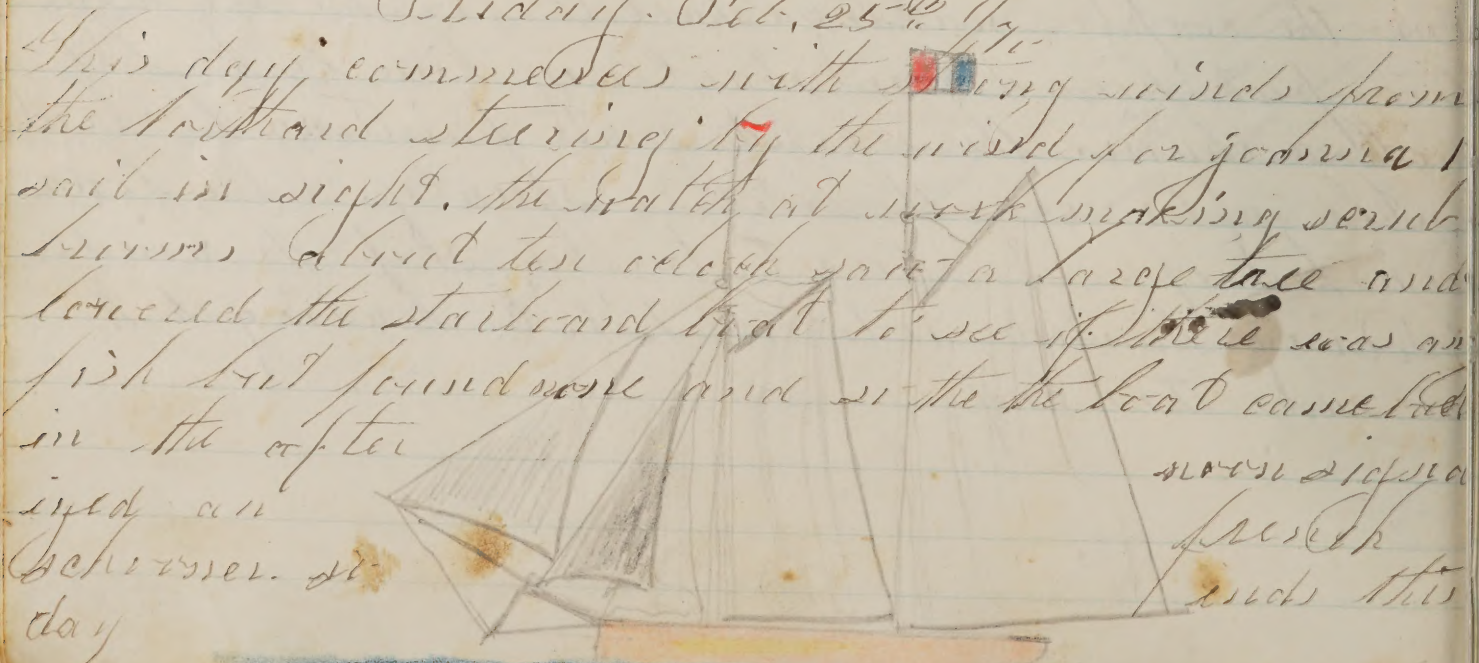 Friday. Feb. 25th
This day commences with strong winds from
the northard steering by the wind for joanna 1
sail in sight. the watch at work making scrub
brooms about ten oclock saw a large tree and
lowered the starboard boat to see if there was an
fish but found none and so the the boat came back
in the after noon signa
ized an french
schooner. so ends this
day